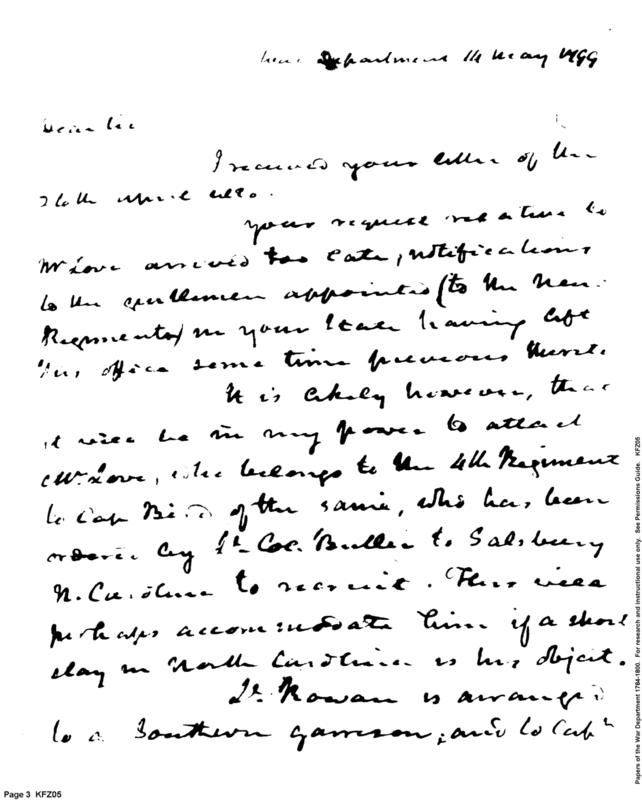 War Department 14 May 1799
Dear Sir
I received your letter of the
26th April ulto.
Your request relative to
Mr Love arrived too late, notifications
to the gentlemen appointed (to the new
Regiments) in your State having left
this office some time previous thereto.
It is likely however, that
it will be in my power to attach
Mr. Love, who belongs to the 4th Regiment
to Cap Bird of the same, who has been
ordered by Lt. Col. Butler to Salsbury
N. Carolina to recruit. This will
perhaps accommodate him if a short
stay in North Carolina is his object.
Lt. Rowan is arranged
to a Southern garrison; and to Capn
Page 3 KFZ05
Papers of the War Department 1784-1800. For research and instructional use only. See Permissions Guide. KFZ05